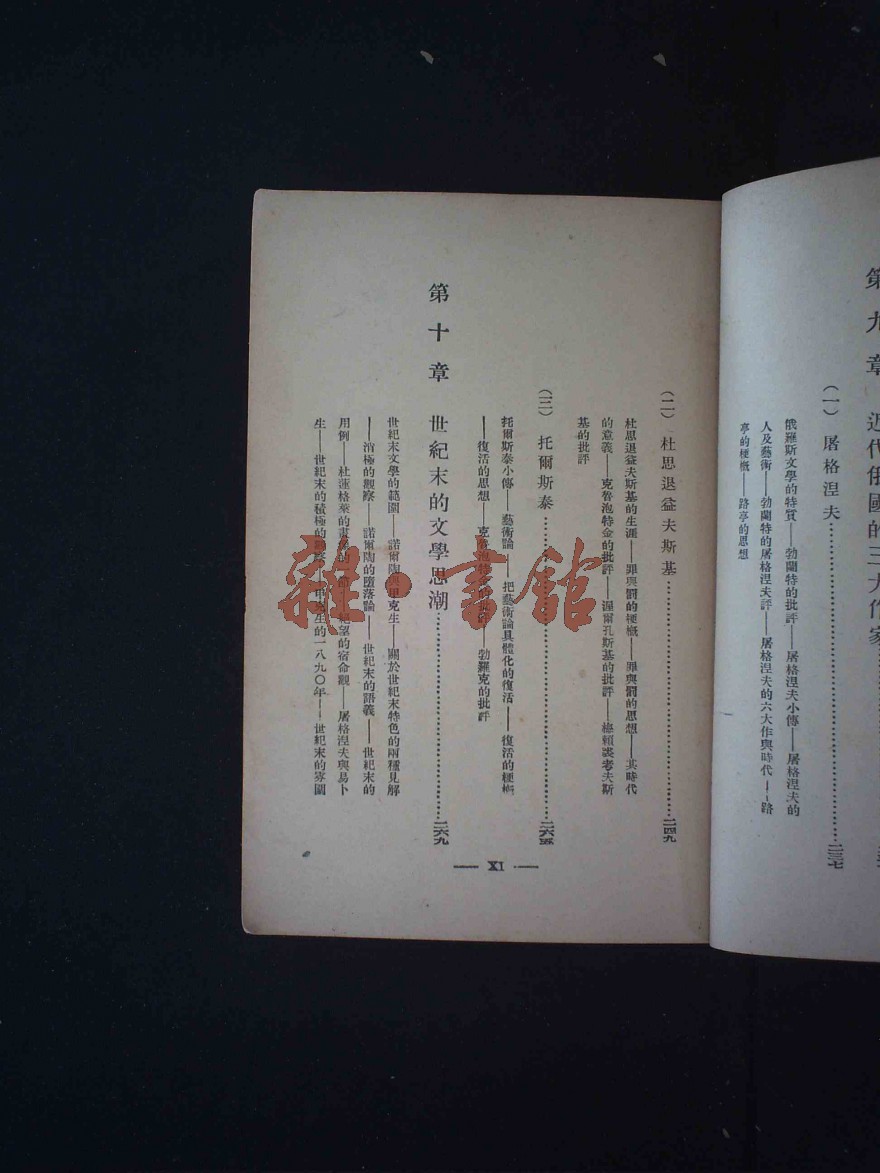 第九章 近代俄國的三大作家
(一) 屠格涅夫……二三七
俄羅斯文學的特質——勃蘭特的批評——屠格涅夫小傳——屠格涅夫的
人及藝術——勃蘭特的屠格涅夫評——屠格涅夫的六大作與時代——路
亭的梗概——路亭的思想
(二) 杜思退益夫斯基……二四九
杜思退益夫斯基的生涯——罪與罰的梗概——罪與罰的思想——其時代
的意義——克魯泡特金的批評——渥爾孔斯基的批評——梅賴裘考夫斯
基的批評
(三) 托爾斯泰……二六五
托爾斯泰小傳——藝術論——把藝術論具體化的復活——復活的梗概
——復活的思想——克魯泡特金的批評——勃羅克的批評
第十章 世紀末的文學思潮……二六九
世紀末文學的範圍——諾爾陶與甲克生——關於世紀末特色的兩種見解
——消極的觀察——諾爾陶的墮落論——世紀末的語義——世紀末的
用例——杜蓮格萊的畫像的一節——絕望的宿命觀——屠格涅夫與易卜
生——世紀末的積極的 甲克生的一八九〇年——世紀末的雰圍
— XI —
雜·書館